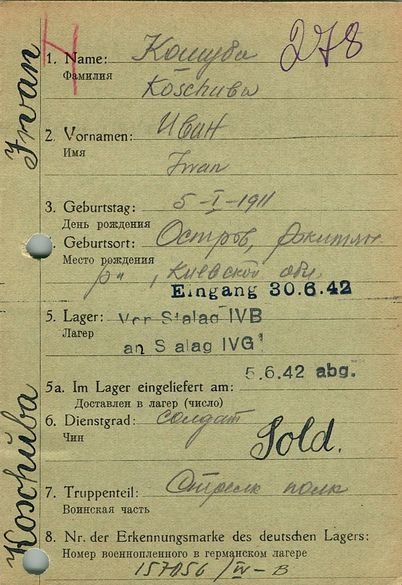 278
1. Name: Кошуба
Фамилия
Koschuba
2. Vornamen: Иван
Имя
Iwan
3. Geburtstag: 5-I-1911
День рождения
4. Geburtsort: Остров,
Место рождения
р-н, Киевской обл.
Eingang 30.6.42
5. Lager: Von Stalag IVB
Лагер
an Stalag IVG
5.6.42 abg.
5a. Im Lager eingeliefert am:
Доставлен в лагер (число)
6. Dienstgrad: солдат
Чин
Sold.
7. Truppenteil: Стрелк полк
Воинская часть
8. Nr. der Erkennungsmarke des deutschen Lagers:
Номер военнопленного в германском лагере
157056/IV-B
Koschuba Iwan